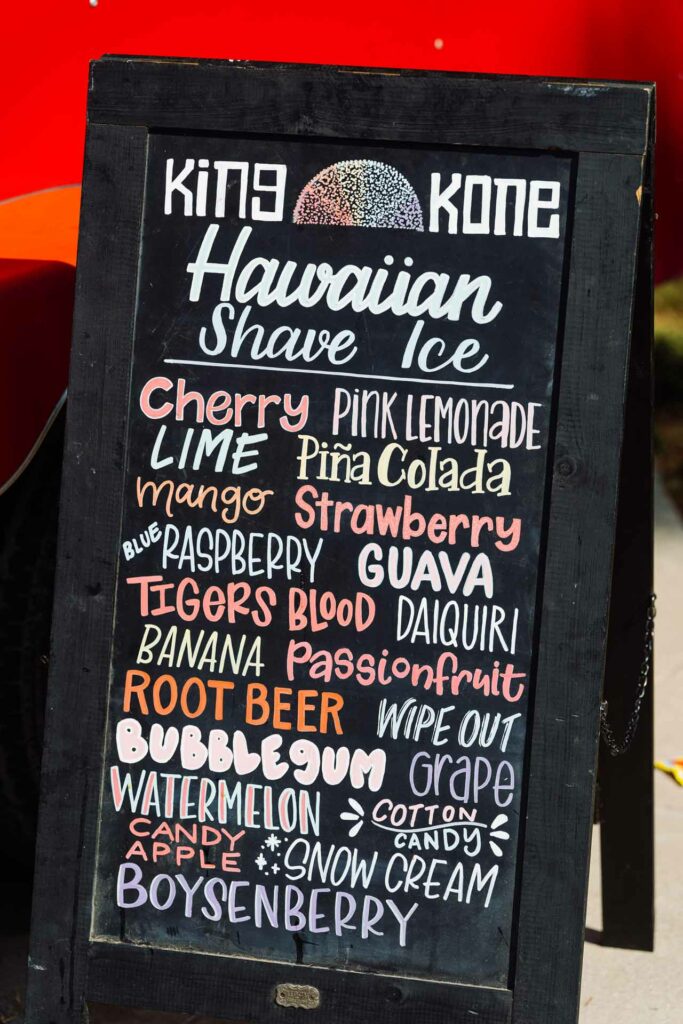 King Kone
Hawaiian
Shave Ice
Cherry PINK LEMONADE
LIME Piña Colada
mango Strawberry
BLUE RASPBERRY GUAVA
TIGERS BLOOD DAIQUIRI
BANANA Passionfruit
ROOT BEER WIPE OUT
BUBBLEGUM Grape
WATERMELON COTTON CANDY
CANDY APPLE SNOW CREAM
BOYSENBERRY